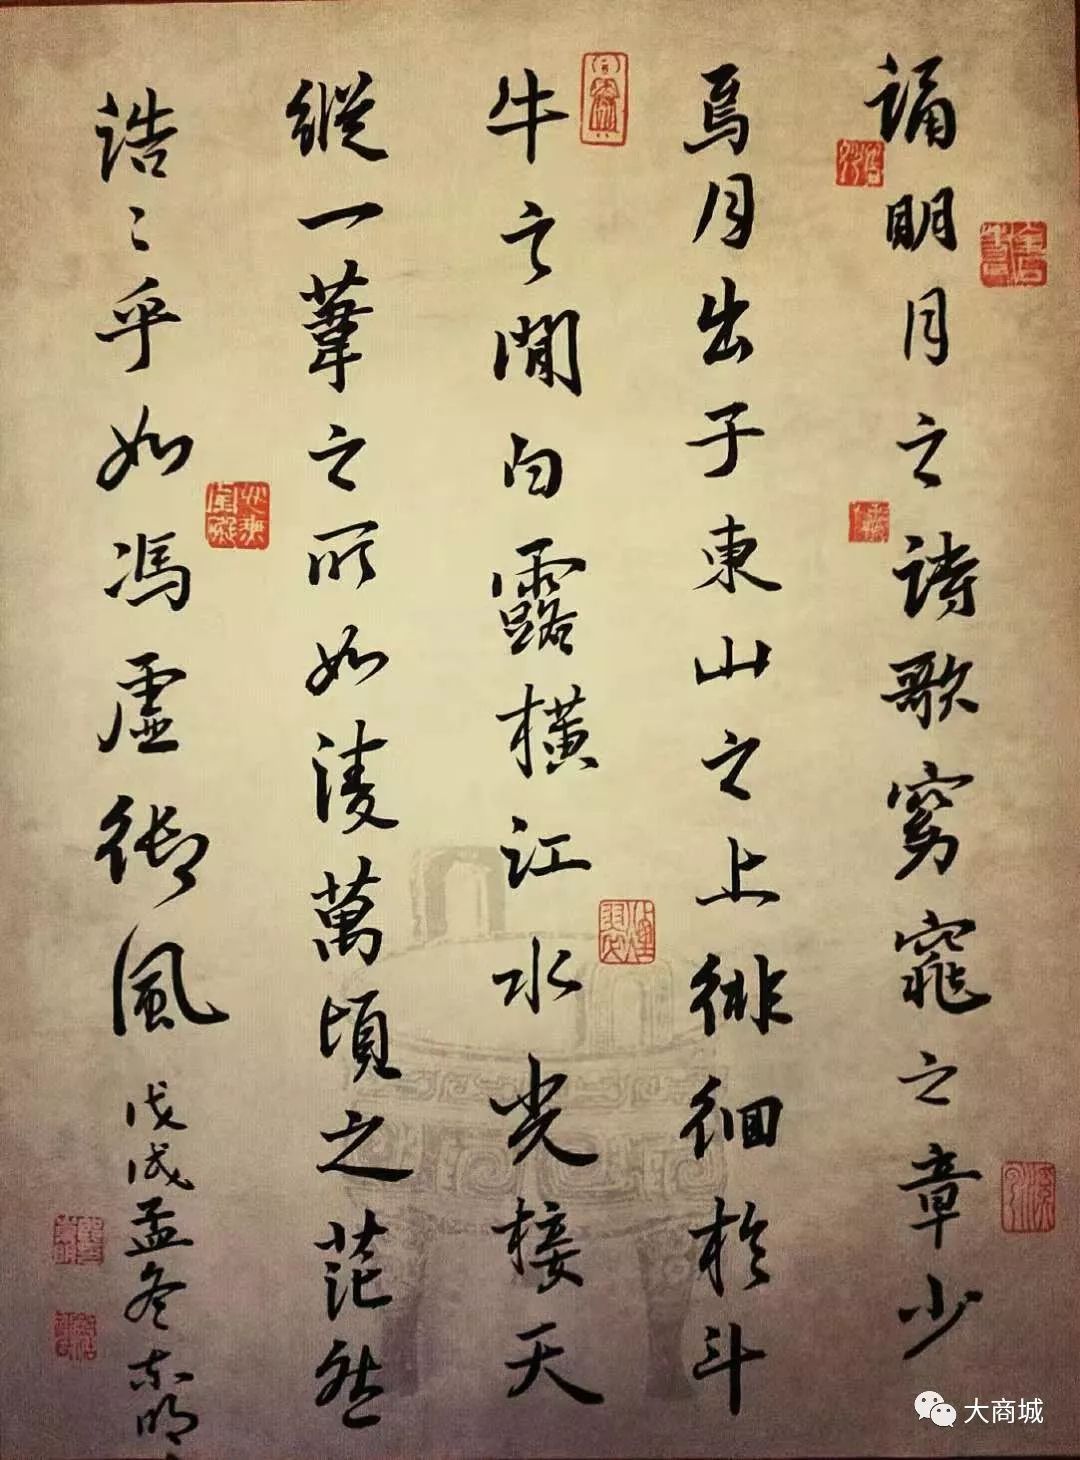 誦明月之詩歌窈窕之章少
焉月出于東山之上徘徊於斗
牛之閒白露橫江水光接天
縱一葦之所如凌萬頃之茫然
浩〻乎如馮虛御風
戊戌孟冬
大商城